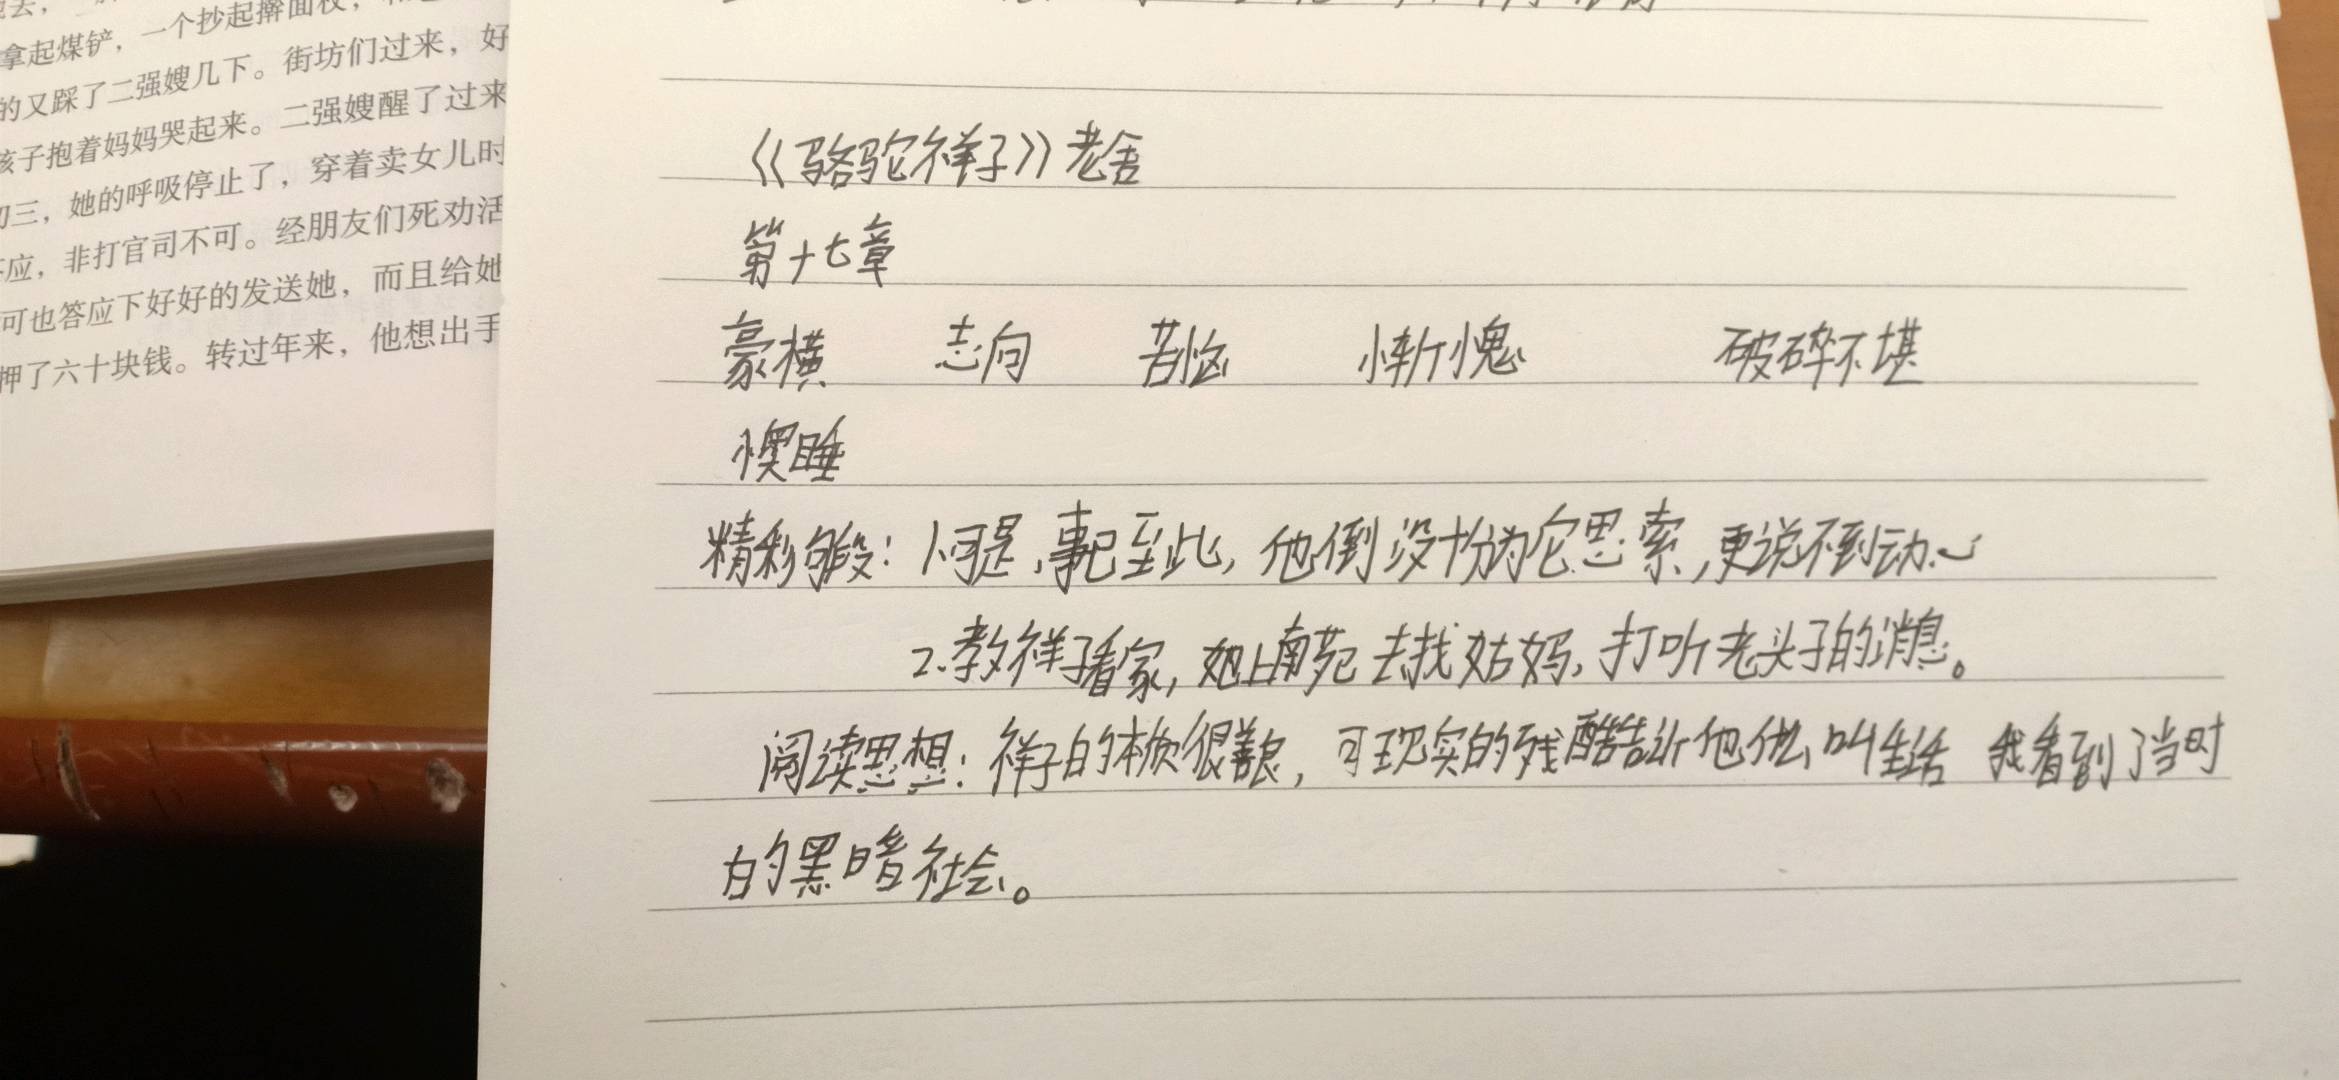 拿起煤铲，一个抄起擀面杖，
的又踩了二强嫂几下。街坊们过来，好
孩子抱着妈妈哭起来。二强嫂醒了过来
初三，她的呼吸停止了，穿着卖女儿时
应，非打官司不可。经朋友们死劝活
可也答应下好好的发送她，而且给她
押了六十块钱。转过年来，他想出手
《骆驼祥子》老舍
第十七章
豪横 志向 苦恼 惭愧 破碎不堪
睡
精彩句段：1.可是，事已至此，他倒没十分为它思索，更说不到动心
2.教祥子看家，她上南苑去找姑妈，打听老头子的消息。
阅读思想：祥子的本质很善良，可现实的残酷让他什么叫生活 我看到了当时
的黑暗社会。